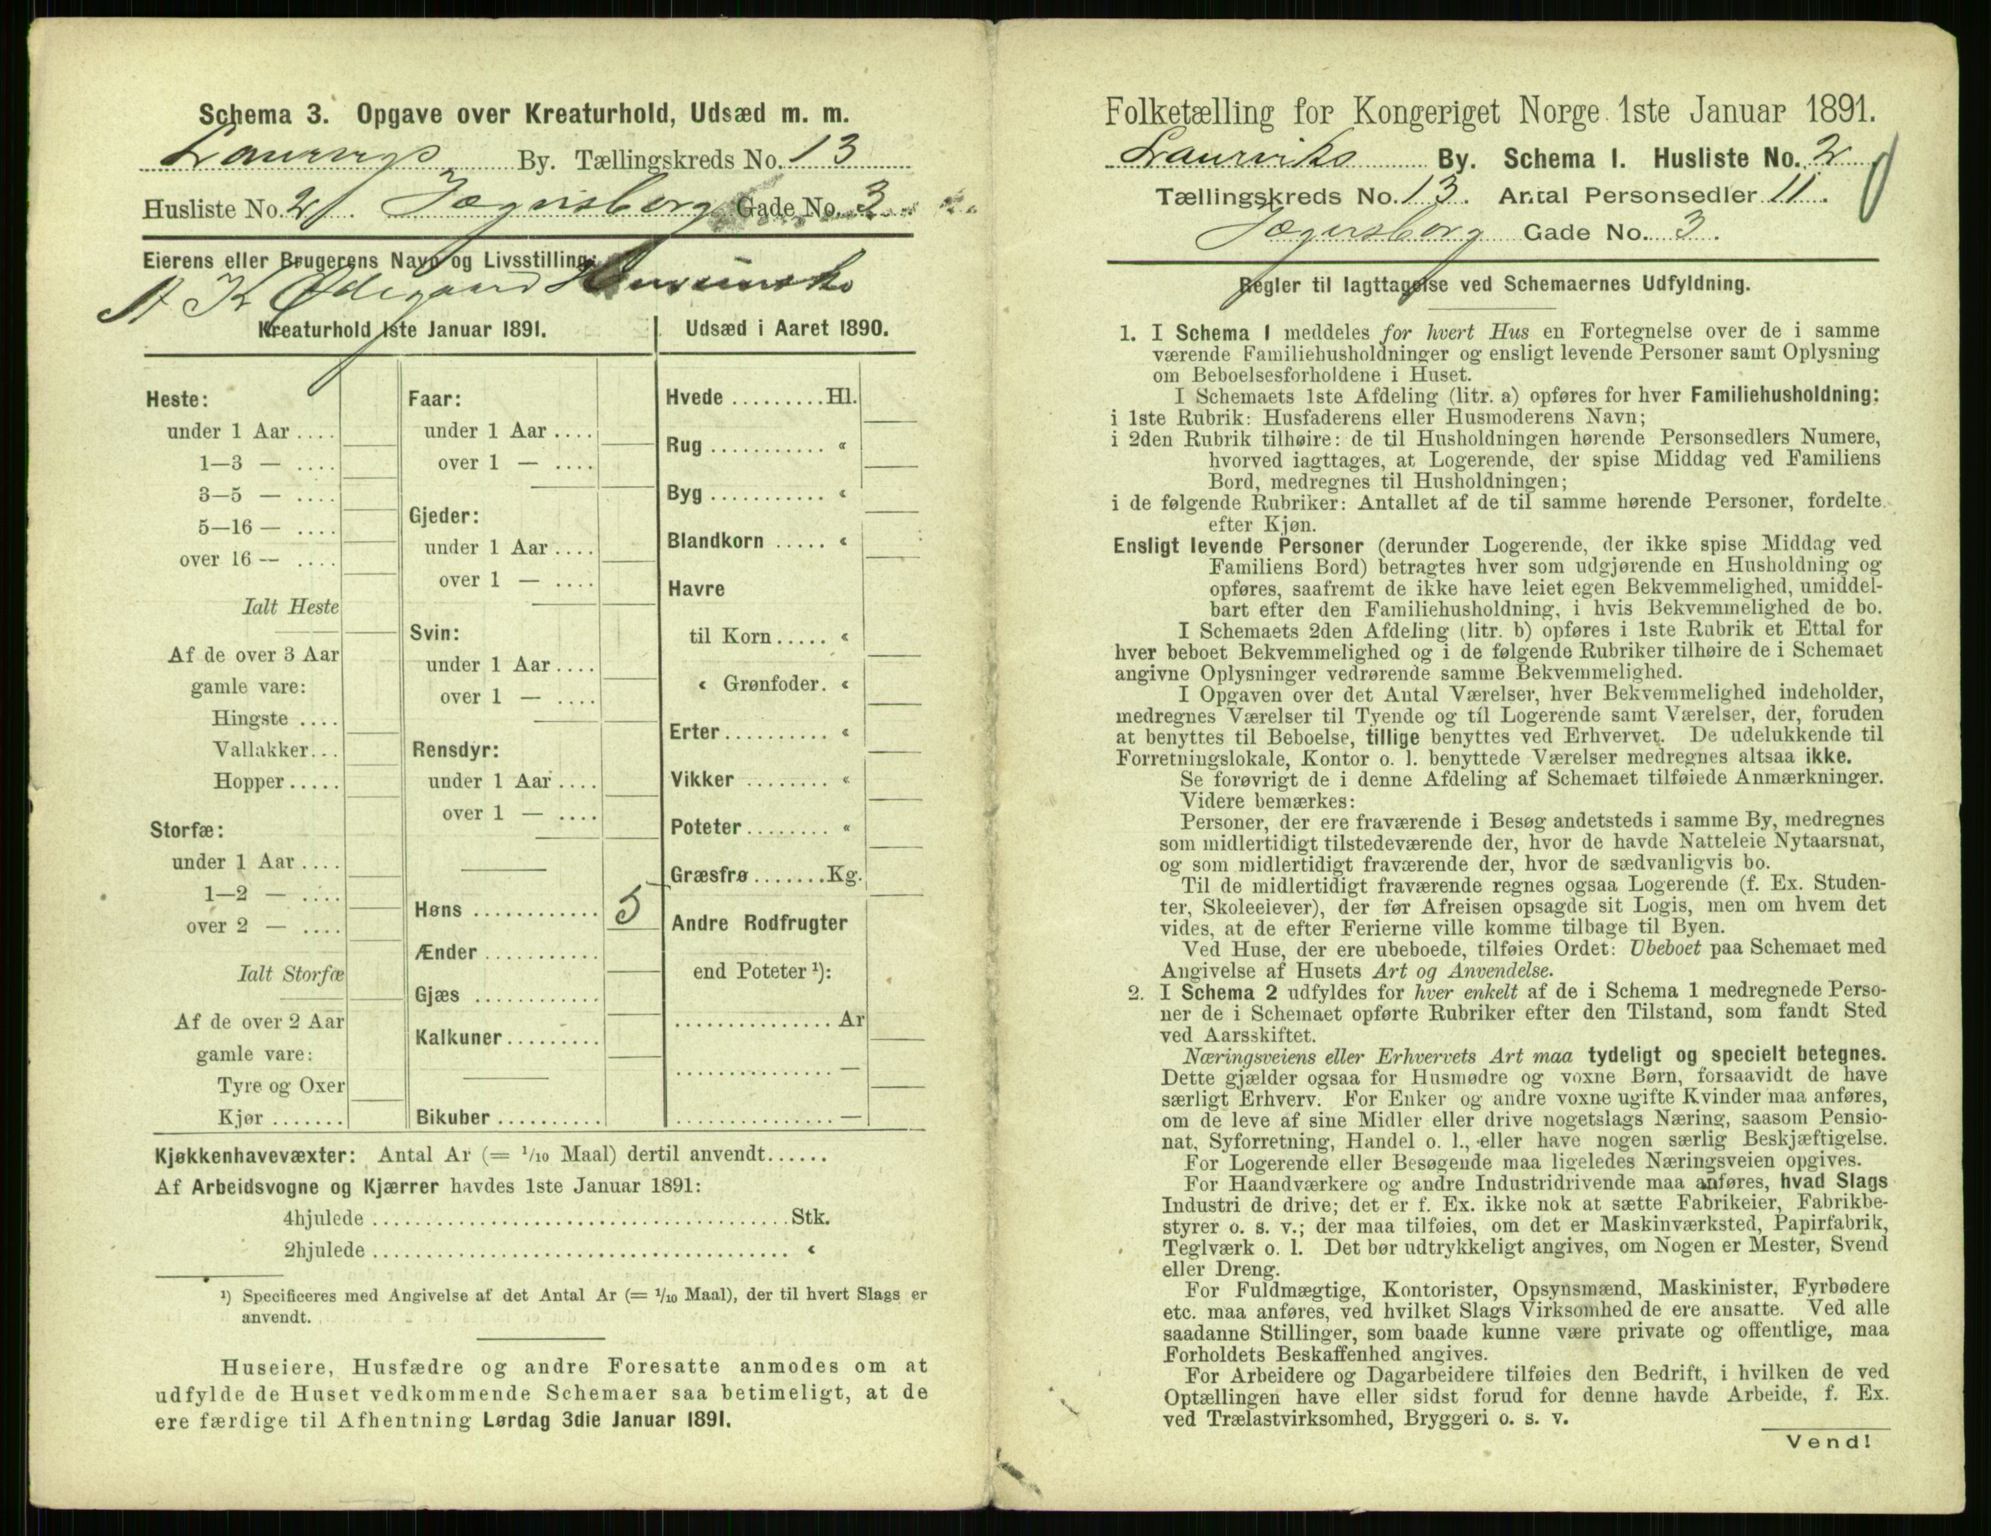 Schema 3. Opgave over Kreaturhold, Udsæd m. m.
Laurvigs By. Tællingskreds No. 13
Husliste No. 2. Jægersborg Gade No. 3
Eierens eller Brugerens Navn og Livsstilling:
A K Ødegaard
Kreaturhold 1ste Januar 1891.
Heste:
under 1 Aar ....
1—3 — ....
3—5 — ....
5—16 — ....
over 16 — ....
Ialt Heste
Af de over 3 Aar
gamle vare:
Hingste ....
Vallakker...
Hopper.....
Storfæ:
under 1 Aar ....
1—2 — ....
over 2 — ....
Ialt Storfæ
Af de over 2 Aar
gamle vare:
Tyre og Oxer
Kjør .......
Faar:
under 1 Aar ....
over 1 — ....
Gjeder:
under 1 Aar ....
over 1 — ....
Svin:
under 1 Aar ....
over 1 — ....
Rensdyr:
under 1 Aar ....
over 1 — ....
Høns ............ 5
Ænder ...........
Gjæs ............
Kalkuner.........
Bikuber ..........
Udsæd i Aaret 1890.
Hvede .........Hl.
Rug ........... «
Byg ........... «
Blandkorn ..... «
Havre
til Korn ..... «
« Grønfoder. «
Erter.......... «
Vikker ........ «
Poteter........ «
Græsfrø.......Kg.
Andre Rodfrugter
end Poteter ¹):
............... Ar
............... —
............... —
Kjøkkenhavevæxter: Antal Ar (= 1/10 Maal) dertil anvendt......
Af Arbeidsvogne og Kjærrer havdes 1ste Januar 1891:
4hjulede ......................................Stk.
2hjulede ...................................... «
¹) Specificeres med Angivelse af det Antal Ar (= 1/10 Maal), der til hvert Slags er
anvendt.
Huseiere, Husfædre og andre Foresatte anmodes om at
udfylde de Huset vedkommende Schemaer saa betimeligt, at de
ere færdige til Afhentning Lørdag 3die Januar 1891.
Folketælling for Kongeriget Norge 1ste Januar 1891.
Laurviks By. Schema 1. Husliste No. 2
Tællingskreds No. 13. Antal Personsedler 11.
Jægersborg Gade No. 3.
Regler til Iagttagelse ved Schemaernes Udfyldning.
1. I Schema 1 meddeles for hvert Hus en Fortegnelse over de i samme
værende Familiehusholdninger og ensligt levende Personer samt Oplysning
om Beboelsesforholdene i Huset.
I Schemaets 1ste Afdeling (litr. a) opføres for hver Familiehusholdning:
i 1ste Rubrik: Husfaderens eller Husmoderens Navn;
i 2den Rubrik tilhøire: de til Husholdningen hørende Personsedlers Numere,
hvorved iagttages, at Logerende, der spise Middag ved Familiens
Bord, medregnes til Husholdningen;
i de følgende Rubriker: Antallet af de til samme hørende Personer, fordelte
efter Kjøn.
Ensligt levende Personer (derunder Logerende, der ikke spise Middag ved
Familiens Bord) betragtes hver som udgjørende en Husholdning og
opføres, saafremt de ikke have leiet egen Bekvemmelighed, umiddel-
bart efter den Familiehusholdning, i hvis Bekvemmelighed de bo.
I Schemaets 2den Afdeling (litr. b) opføres i 1ste Rubrik et Ettal for
hver beboet Bekvemmelighed og i de følgende Rubriker tilhøire de i Schemaet
angivne Oplysninger vedrørende samme Bekvemmelighed.
I Opgaven over det Antal Værelser, hver Bekvemmelighed indeholder,
medregnes Værelser til Tyende og til Logerende samt Værelser, der, foruden
at benyttes til Beboelse, tillige benyttes ved Erhvervet. De udelukkende til
Forretningslokale, Kontor o. l. benyttede Værelser medregnes altsaa ikke.
Se forøvrigt de i denne Afdeling af Schemaet tilføiede Anmærkninger.
Videre bemærkes:
Personer, der ere fraværende i Besøg andetsteds i samme By, medregnes
som midlertidigt tilstedeværende der, hvor de havde Natteleie Nytaarsnat,
og som midlertidigt fraværende der, hvor de sædvanligvis bo.
Til de midlertidigt fraværende regnes ogsaa Logerende (f. Ex. Studen-
ter, Skoleeiever), der før Afreisen opsagde sit Logis, men om hvem det
vides, at de efter Ferierne ville komme tilbage til Byen.
Ved Huse, der ere ubeboede, tilføies Ordet: Ubeboet paa Schemaet med
Angivelse af Husets Art og Anvendelse.
2. I Schema 2 udfyldes for hver enkelt af de i Schema 1 medregnede Perso-
ner de i Schemaet opførte Rubriker efter den Tilstand, som fandt Sted
ved Aarsskiftet.
Næringsveiens eller Erhvervets Art maa tydeligt og specielt betegnes.
Dette gjælder ogsaa for Husmødre og voxne Børn, forsaavidt de have
særligt Erhverv. For Enker og andre voxne ugifte Kvinder maa anføres,
om de leve af sine Midler eller drive nogetslags Næring, saasom Pensio-
nat, Syforretning, Handel o. l., eller have nogen særlig Beskjæftigelse.
For Logerende eller Besøgende maa ligeledes Næringsveien opgives.
For Haandværkere og andre Industridrivende maa anføres, hvad Slags
Industri de drive; det er f. Ex. ikke nok at sætte Fabrikeier, Fabrikbe-
styrer o. s. v.; der maa tilføies, om det er Maskinværksted, Papirfabrik,
Teglværk o. l. Det bør udtrykkeligt angives, om Nogen er Mester, Svend
eller Dreng.
For Fuldmægtige, Kontorister, Opsynsmænd, Maskinister, Fyrbødere
etc. maa anføres, ved hvilket Slags Virksomhed de ere ansatte. Ved alle
saadanne Stillinger, som baade kunne være private og offentlige, maa
Forholdets Beskaffenhed angives.
For Arbeidere og Dagarbeidere tilføies den Bedrift, i hvilken de ved
Optællingen have eller sidst forud for denne havde Arbeide, f. Ex.
ved Trælastvirksomhed, Bryggeri o. s. v.
Vend!